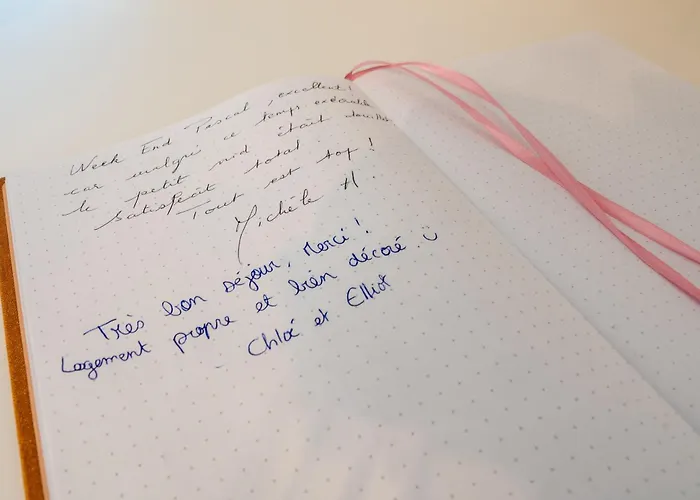 Week End Pascal, excellent!
car malgré ce temps exécrable
le petit nid était douillet
Satisfait total.
Tout est top!
Michèle H.
Très bon séjour, Merci!
Logement propre et bien décoré. ☺
Chloé et Elliot